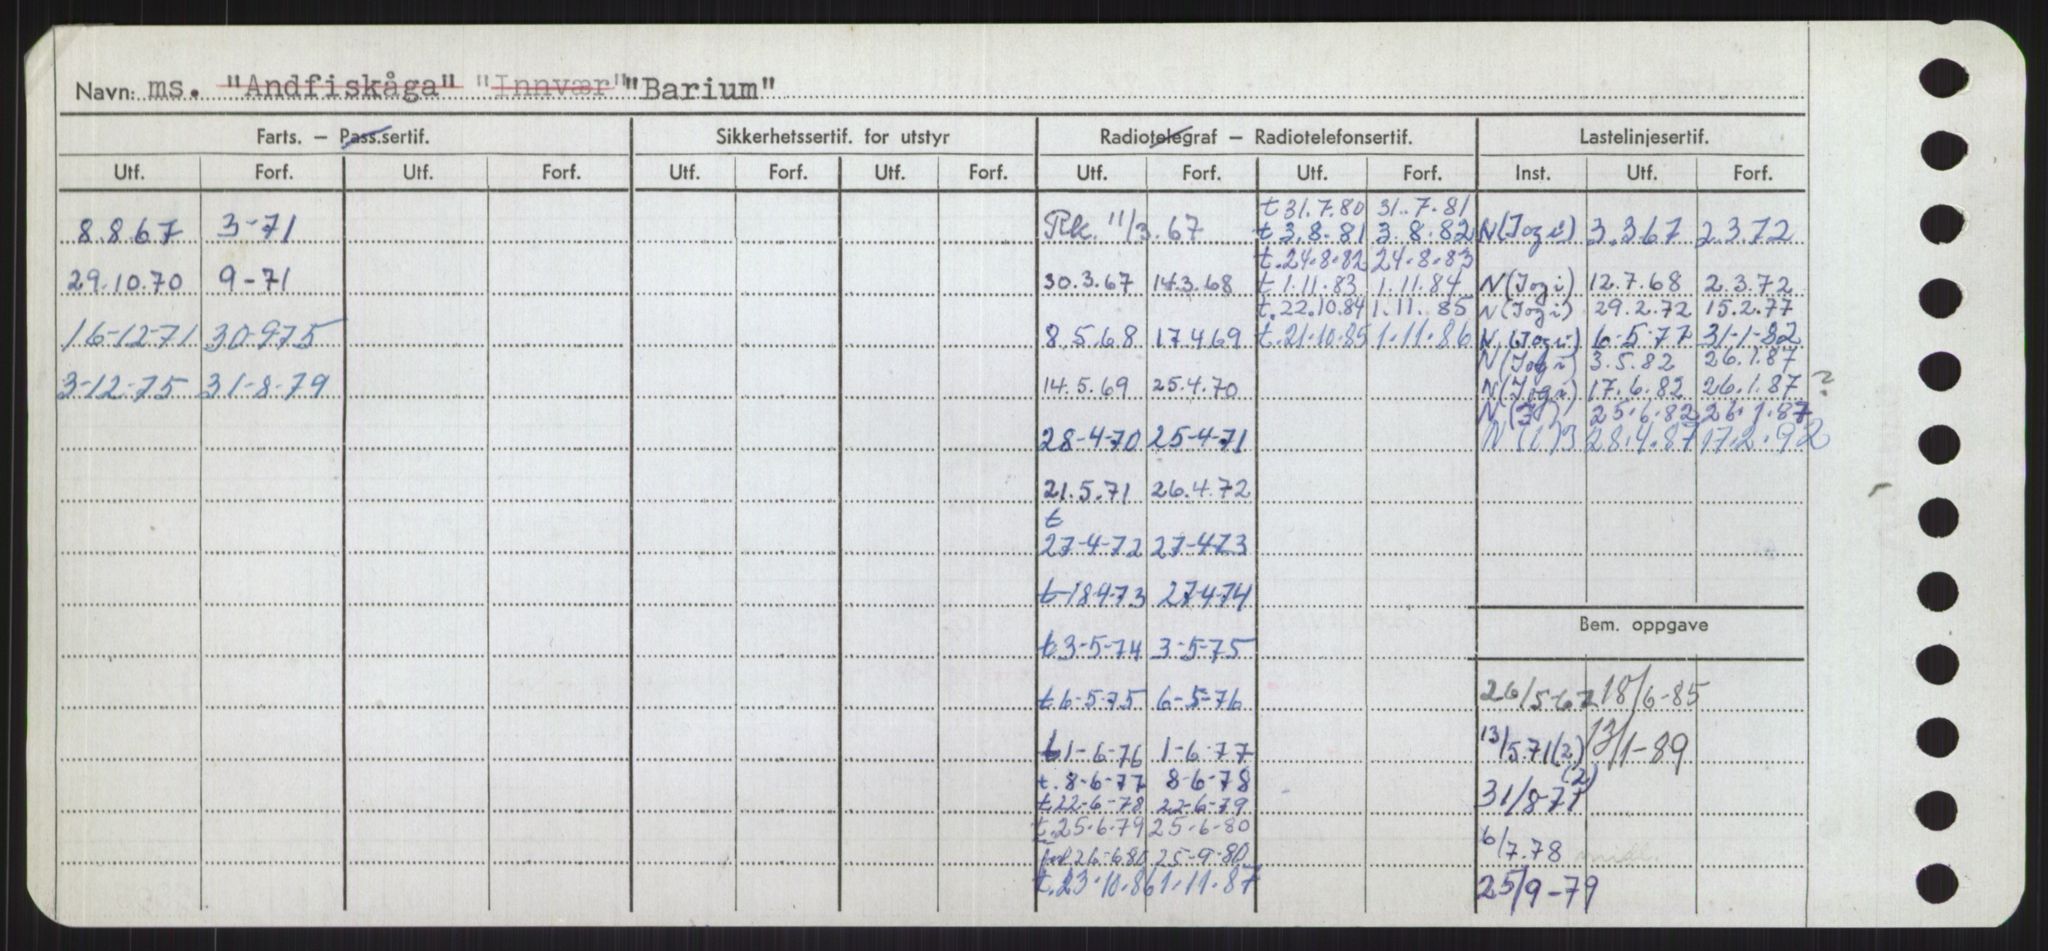 Navn: ms. "Andfiskåga" "Innvær" "Barium"
Farts. — Pass.sertif. Sikkerhetssertif. for utstyr Radiotelegraf — Radiotelefonsertif. Lastelinjesertif.
Utf. Forf. Utf. Forf. Utf. Forf. Utf. Forf. Utf. Forf. Utf. Forf. Inst. Utf. Forf.
t 31.7.80 31.7.81
8.8.67 3-71 Rk. 11/3.67 t 3.8.81 3.8.82 N(Jogi) 3.3.67 2.3.72
t.24.8.82 24.8.83
29.10.70 9-71 30.3.67 14.3.68 t 1.11.83 1.11.84 N(Jogi) 12.7.68 2.3.72
t.22.10.84 1.11.85 N(Jogi) 29.2.72 15.2.77
16-12-71 30-9-75 8.5.68 17.4.69 t.21.10.85 1.11.86 N.(Jogi) 6-5-77 31-1-82
N(Jogi) 3.5.82 26.1.87
3-12-75 31-8-79 14.5.69 25.4.70 N(Jogi) 17.6.82 26.1.87 ?
25.6.82 26.1.87
28-4-70 25-4-71 28.4.87 17.2.92
21.5.71 26.4.72
t
27-4-72 27-4-73
t-18-4-73 27-4-74
Bem. oppgave
t 3-5-74 3-5-75
t 6-5-75 6-5-76 26/5-67 18/6-85
t 1-6-76 1-6-77 13/5.71(2) 13/1-89
t. 8-6-77 8-6-78 (2)
t 22-6-78 22-6-79 31/8-71
t.25.6.79 25.6.80
26-6-80 25-9-80 6/7.78
t.23.10.86 1.11.87 25/9-79